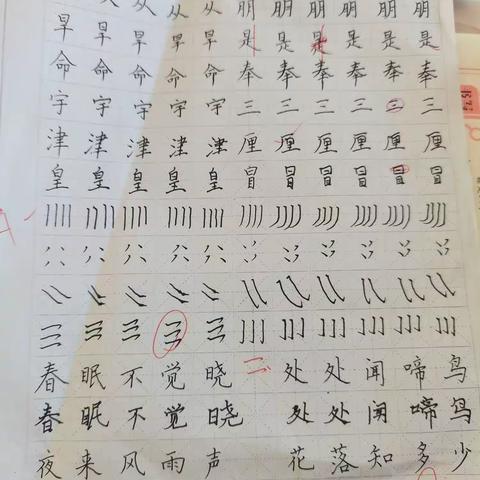 从 从 从 朋 朋 朋 朋 朋 朋
早 早 早 早 早 是 是 是 是 是 是
命 命 命 命 命 奉 奉 奉 奉 奉 奉
宇 宇 宇 宇 宇 三 三 三 三 三 三
津 津 津 津 津 厘 厘 厘 厘 厘 厘
皇 皇 皇 皇 皇 冒 冒 冒 冒 冒 冒
春 眠 不 觉 晓 处 处 闻 啼 鸟
春 眠 不 觉 晓 处 处 闻 啼 鸟
夜 来 风 雨 声 花 落 知 多 少